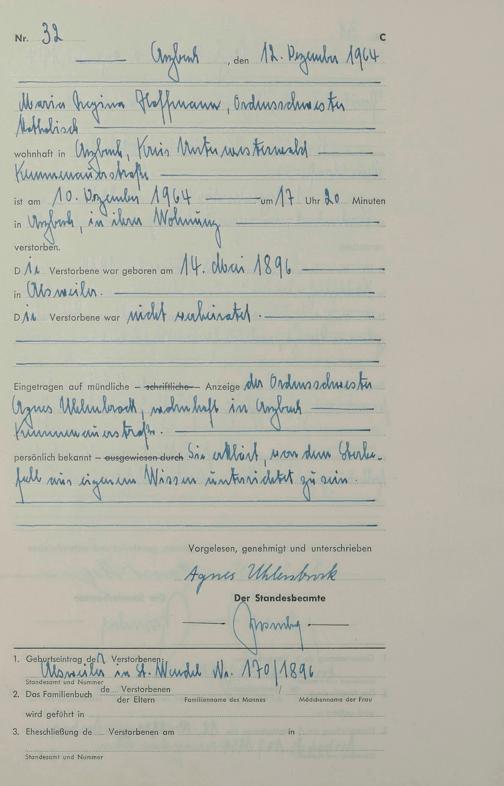 Nr. 32 C
Arzbach, den 12. Dezember 1964
Maria Regina Hoffmann, Ordensschwester
katholisch
wohnhaft in Arzbach, Kreis Unterwesterwald
Kummenauerstraße
ist am 10. Dezember 1964 um 17 Uhr 20 Minuten
in Arzbach, in ihrer Wohnung
verstorben.
Die Verstorbene war geboren am 14. Mai 1896
in Alsweiler.
Die Verstorbene war nicht verheiratet.
Eingetragen auf mündliche – schriftliche – Anzeige der Ordensschwester
Agnes Uhlenbrock, wohnhaft in Arzbach
Kummenauerstraße.
persönlich bekannt – ausgewiesen durch Sie erklärt, von dem Sterbe-
fall aus eigenem Wissen unterrichtet zu sein.
Vorgelesen, genehmigt und unterschrieben
Agnes Uhlenbrock
Der Standesbeamte
1. Geburtseintrag der Verstorbenen:
Alsweiler in St. Wendel Nr. 170/1896
Standesamt und Nummer
2. Das Familienbuch de... Verstorbenen /
der Eltern Familienname des Mannes Mädchenname der Frau
wird geführt in
3. Eheschließung de... Verstorbenen am in
Standesamt und Nummer